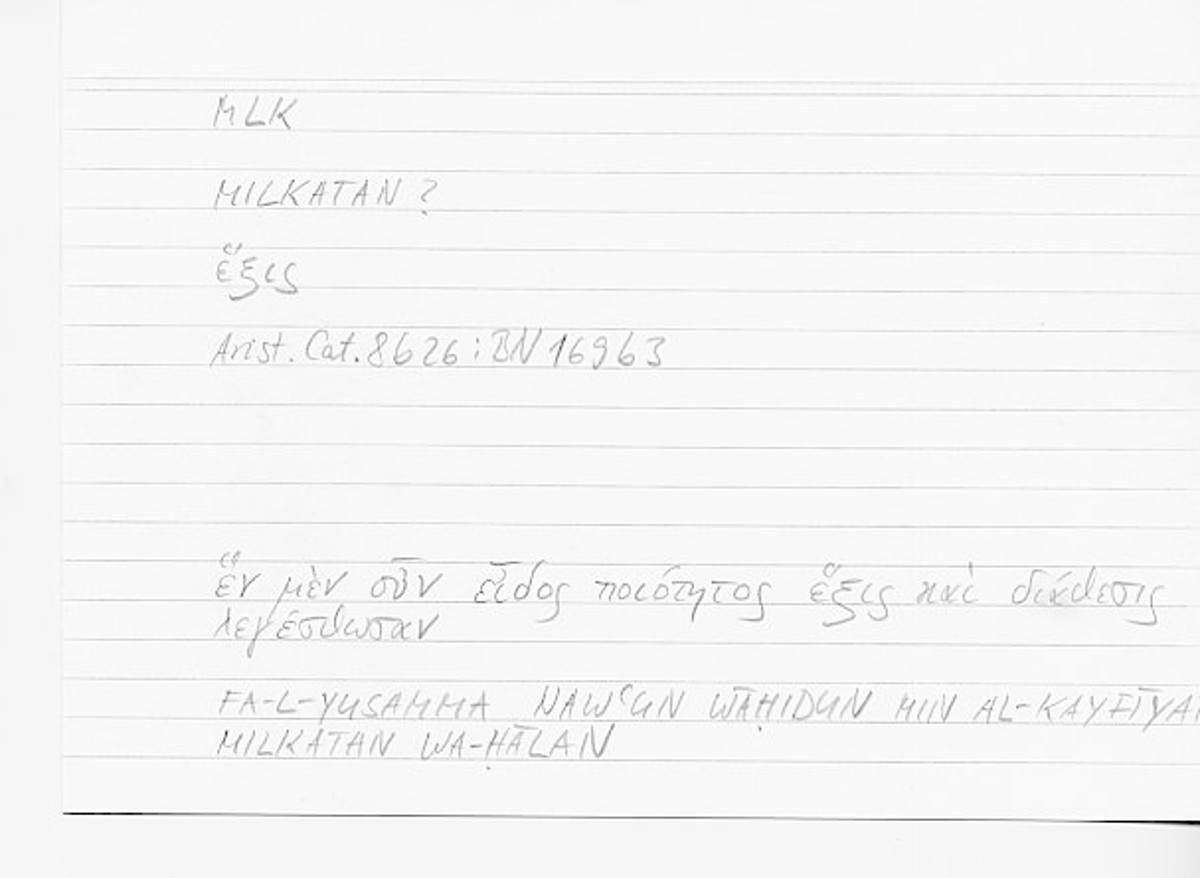 MLK
MILKATAN ?
ἕξις
Arist. Cat. 8b26 : BN 169b3
ἓν μὲν οὖν εἶδος ποιότητος ἕξις καὶ διάθεσις
λεγέσθωσαν
FA-L-YUSAMMA NAWʿUN WĀḤIDUN MIN AL-KAYFĪYA
MILKATAN WA-ḤĀLAN